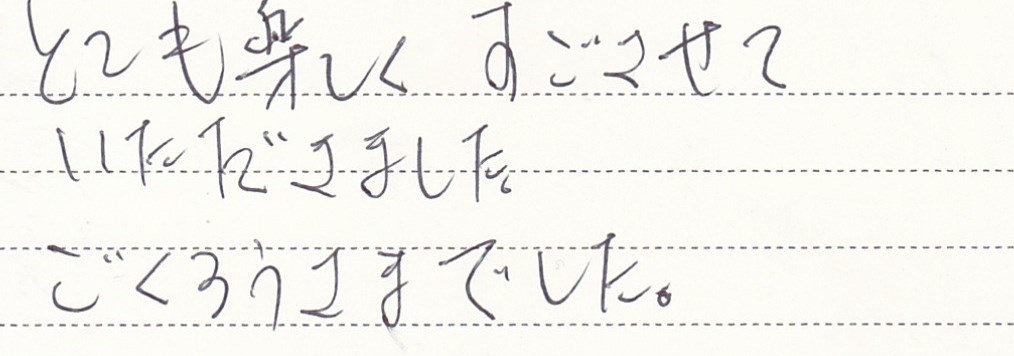 とても楽しくすごさせて
いただきました。
ごくろうさまでした。